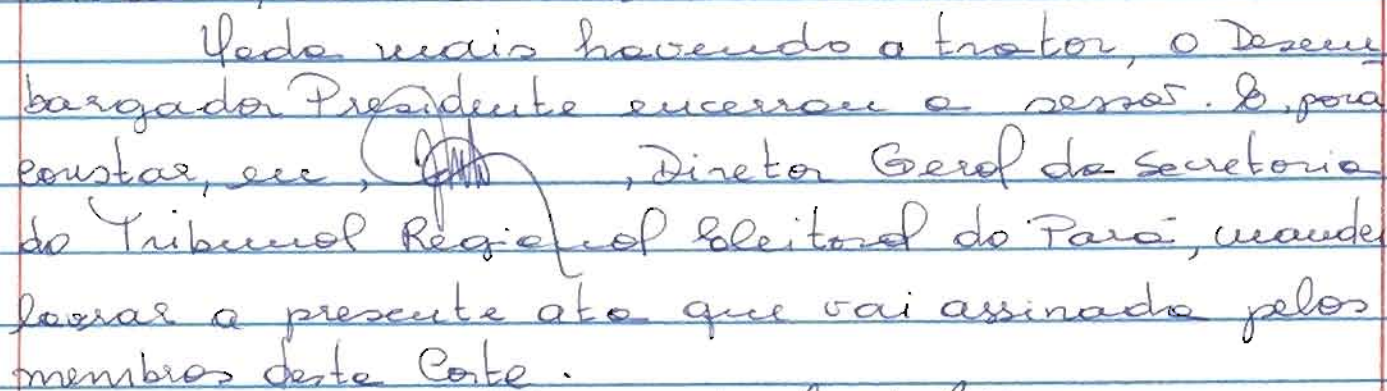 Nada mais havendo a tratar, o Desem
bargador Presidente encerrou a sessão. E, para
constar, eu, , Diretor Geral da Secretaria
do Tribunal Regional Eleitoral do Pará, mandei
lavrar a presente ata que vai assinada pelos
membros desta Corte.